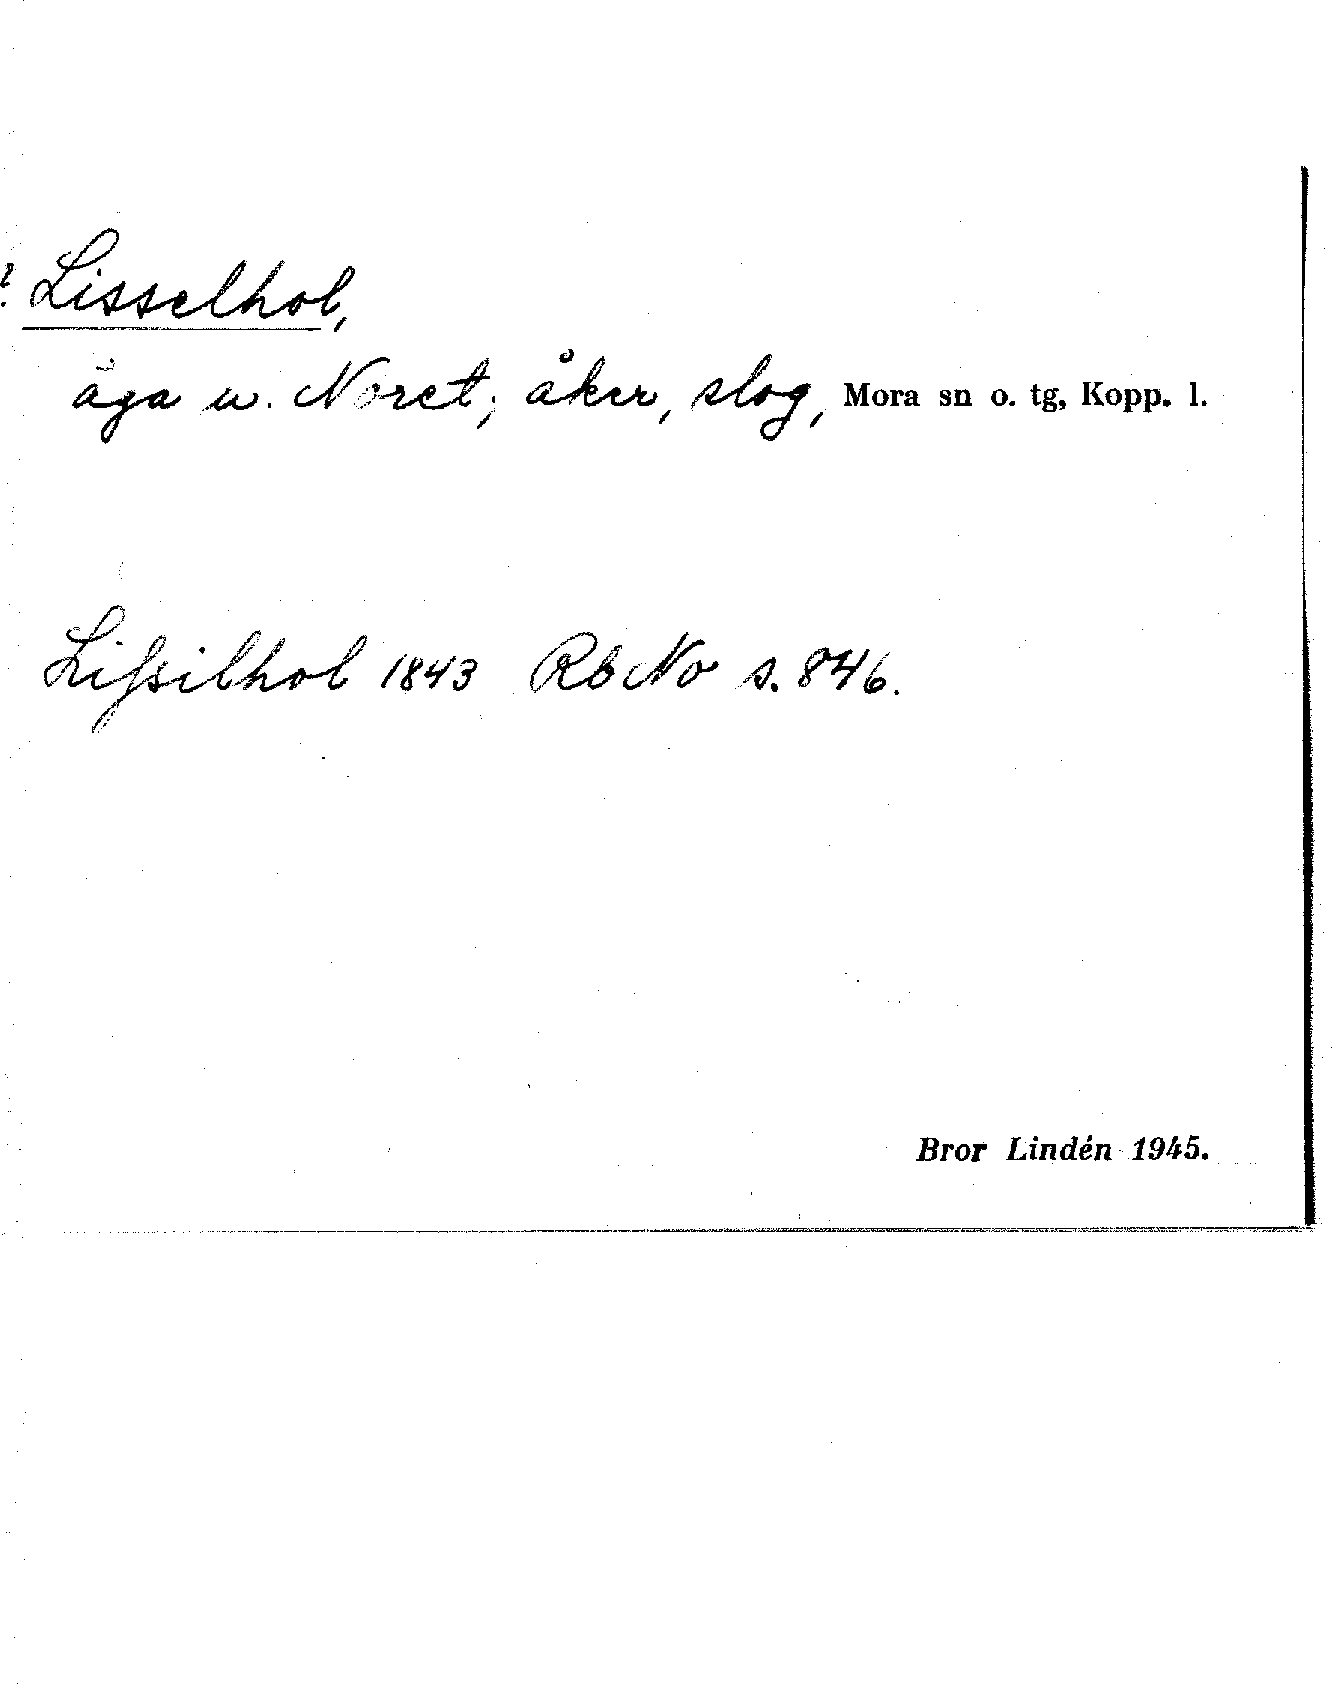 ? Lisselhol,
äga u. Noret; åker, slog, Mora sn o. tg, Kopp. l.
Lissilhol 1843 Rb No s. 846.
Bror Lindén 1945.